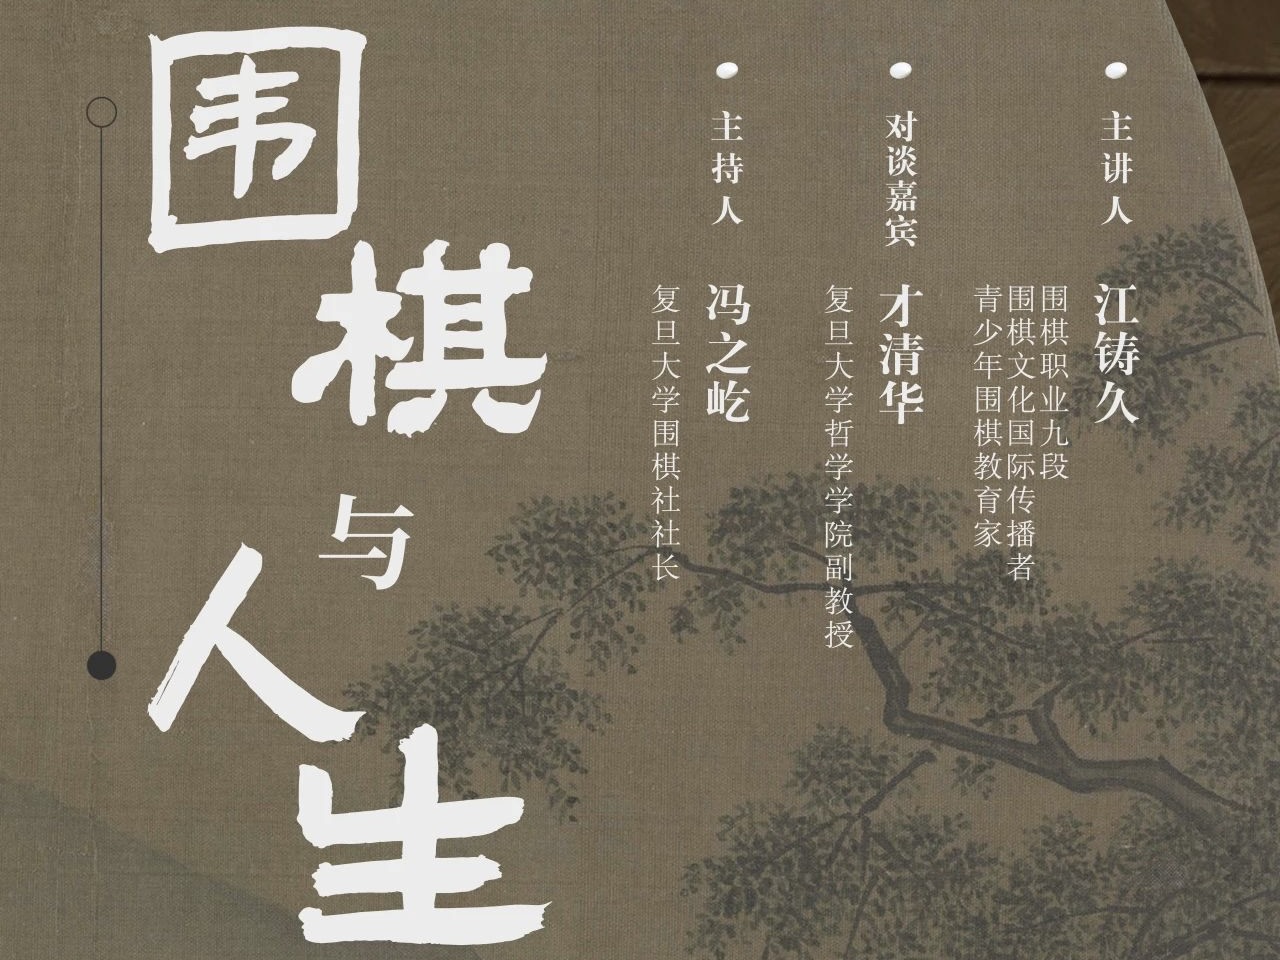 围棋
与
人生
主讲人
江铸久
围棋职业九段
围棋文化国际传播者
青少年围棋教育家
对谈嘉宾
才清华
复旦大学哲学学院副教授
主持人
冯之屹
复旦大学围棋社社长